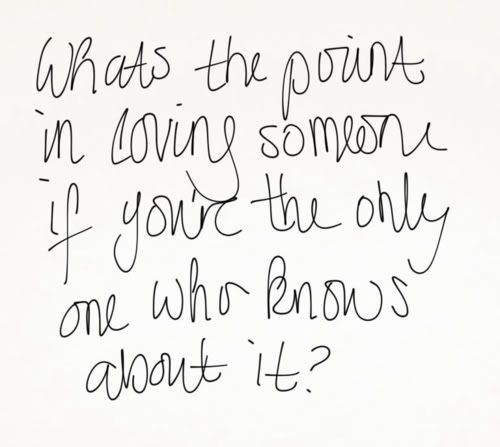 Whats the point
in loving someone
if you're the only
one who knows
about it?